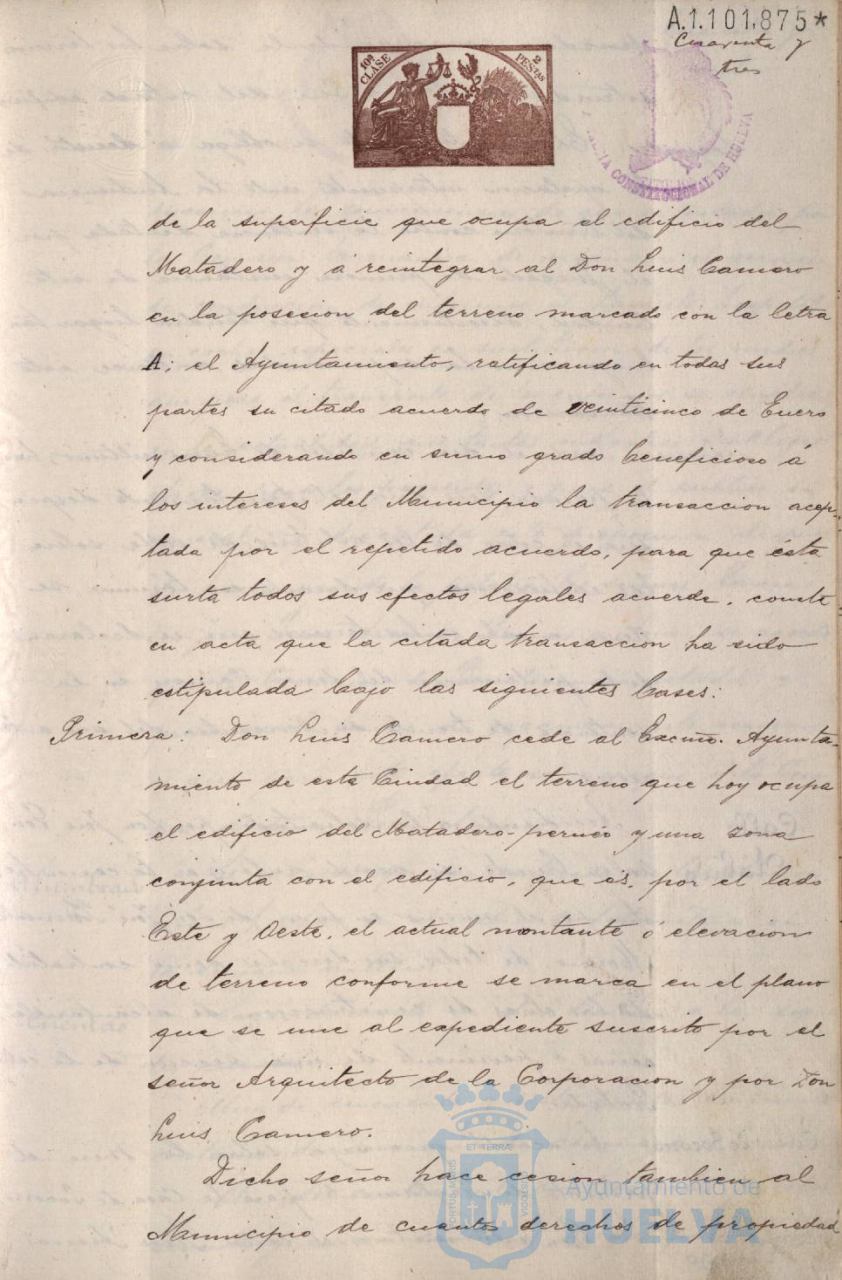 A.1.101.875*
Cuarenta y
tres
10ª CLASE 2 PESTAS
CONSTITUCIONAL DE HUELVA
de la superficie que ocupa el edificio del
Matadero y á reintegrar al Don Luis Camero
en la posesion del terreno marcado con la letra
A; el Ayuntamiento, ratificando en todas sus
partes su citado acuerdo de veinticinco de Enero
y considerando en sumo grado beneficioso á
los intereses del Municipio la transaccion acep-
tada por el repetido acuerdo, para que ésta
surta todos sus efectos legales acuerde, conste
en acta que la citada transaccion ha sido
estipulada bajo las siguientes bases:
Primera: Don Luis Camero cede al Excmo. Ayunta-
miento de esta Ciudad el terreno que hoy ocupa
el edificio del Matadero-perneo y una zona
conjunta con el edificio, que es, por el lado
Este y Oeste, el actual montante ó elevacion
de terreno conforme se marca en el plano
que se une al expediente suscrito por el
señor Arquitecto de la Corporacion y por Don
Luis Camero.
Dicho señor hace cesion tambien al
Municipio de cuantos derechos de propiedad
Ayuntamiento de
HUELVA